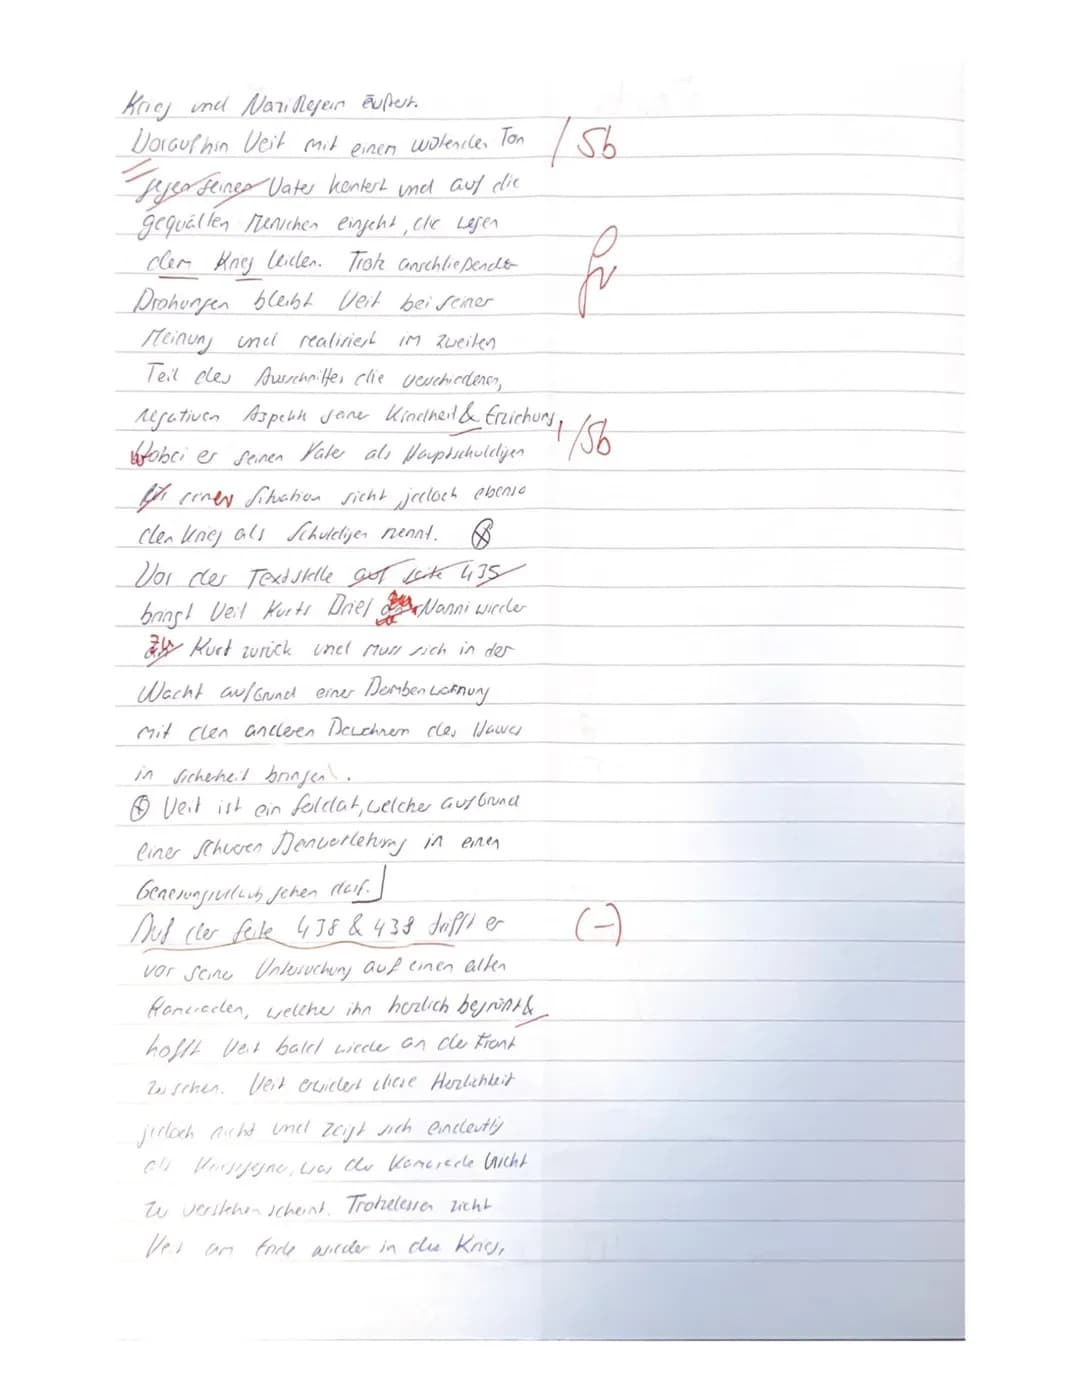 Krieg und Nazi Regein äußert.
Woraufhin Veit mit einem wütenden Ton / Sb
gegen seinen Vater kontert und auf die
gequälten Menschen eingeht, die wegen
dem Krieg leiden. Trotz anschließender Gr
Drohungen bleibt Veit bei seiner
Meinung und realisiert im zweiten
Teil des Ausschnittes die verschiedenen,
negativen Aspekte seiner Kindheit & Erziehung, / Sb
Wobei er seinen Vater als Hauptschuldigen
einer Situation sieht jedoch ebenso
den Krieg als Schuldigen nennt. ⊗
Vor der Textstelle auf Seite 435
bringt Veit Kurts Brief Nanni wieder
zu Kurt zurück und muss sich in der
Nacht aufGrund einer Bombenwarnung
mit den anderen Bewohnern des Hauses
in Sicherheit bringen.
⊗ Veit ist ein Soldat, welcher aufGrund
einer schweren Beinverletzung in einen
Genesungsurlaub gehen darf.
Auf der Seite 438 & 439 trifft er (-)
vor seiner Untersuchung auf einen alten
Kameraden, welcher ihn herzlich begrüßt &
hofft Veit bald wieder an der Front
zu sehen. Veit erwidert diese Herzlichkeit
jedoch nicht und zeigt sich eindeutig
als Kriegsgegner, was der Kamerade nicht
zu verstehen scheint. Trotzdessen zieht
Veit am Ende wieder in den Krieg,